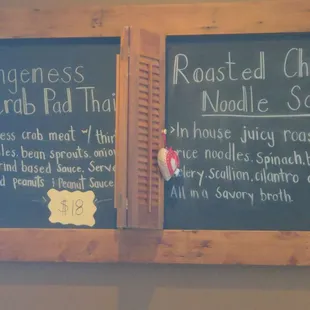 ngeness
Crab Pad Thai
ess crab meat w/ thin
les, bean sprouts, onion
rind based sauce. Serve
d peanuts & Peanut Sauce
$18
Roasted Ch
Noodle So
>In house juicy roas
rice noodles, Spinach, b
elery, scallion, cilantro
All in a Savory broth.